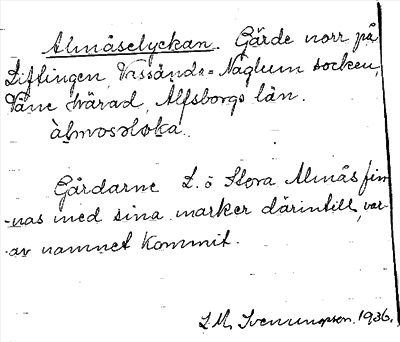 Almåselyckan. Gärde norr på
Liflingen, Vassända-Naglum socken,
Väne härad, Älfsborgs län.
Gårdarne L. o Stora Almås fin
-nas med sina marker därintill, var-
av namnet kommit.
L M, Svenungsson. 1936.